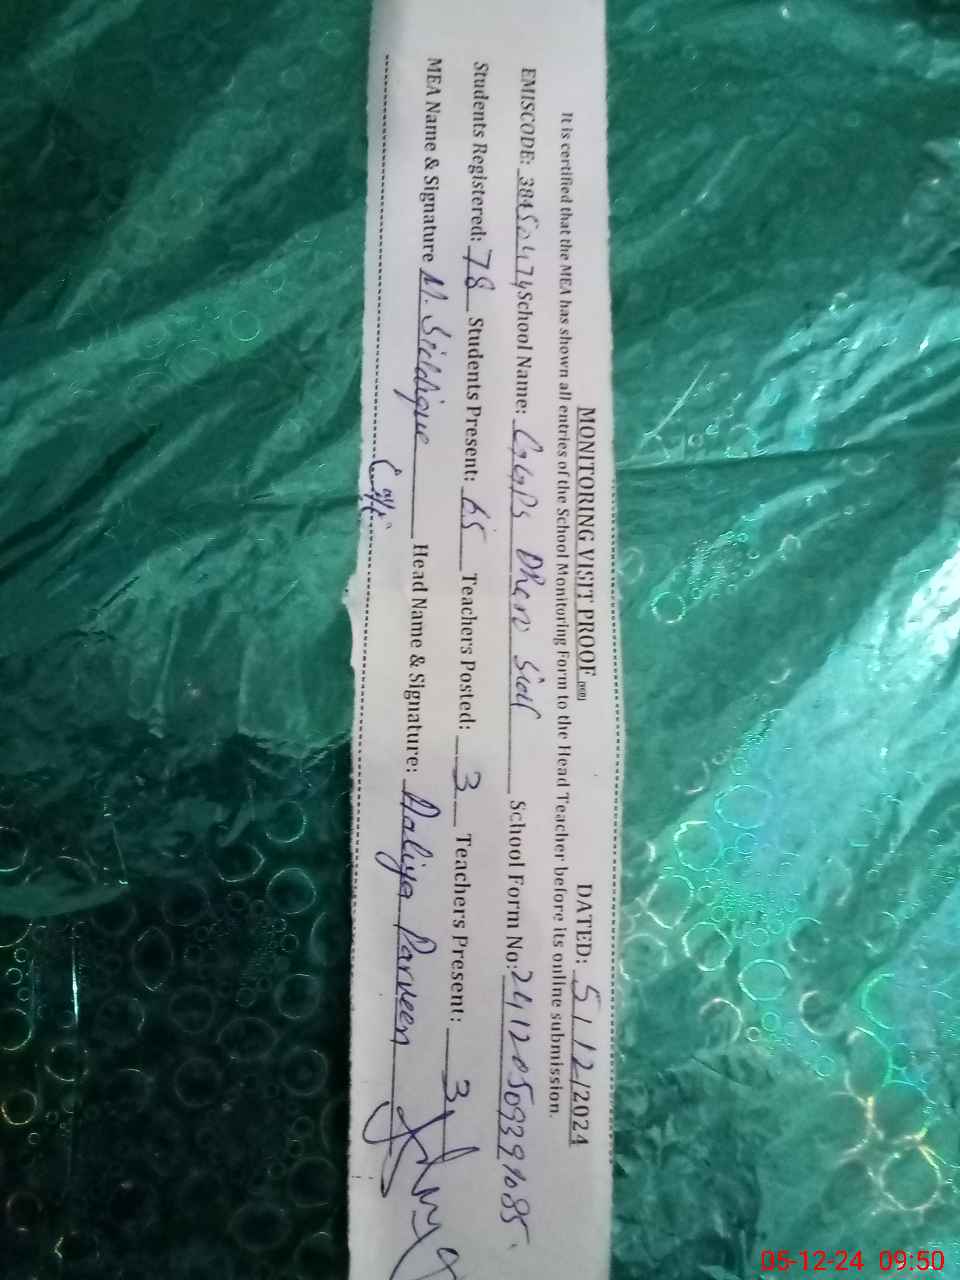 MONITORING VISIT PROOF DATED: 5/12/2024
It is certified that the MEA has shown all entries of the School Monitoring Form to the Head Teacher before its online submission.
EMISCODE: School Name: GGPS Dhero School Form No:
Students Registered: 78 Students Present: 65 Teachers Posted: 3 Teachers Present: 3
MEA Name & Signature M. Siddique Head Name & Signature: Aaliya Parveen
05-12-24 09:50